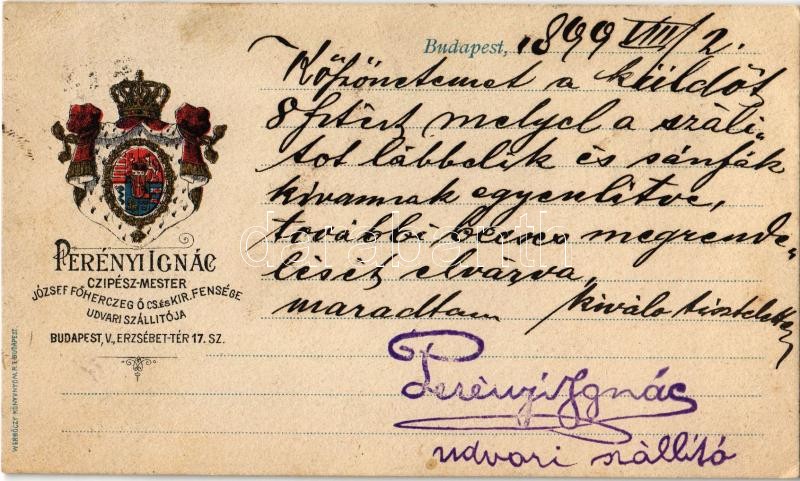 Budapest, 1899 VIII/2.
Köszönetemet a küldöt
8 frtért melyel a száli„
tot lábbelik és sámfák
kivannak egyenlitve,
további becses megrende„
lését elvárva,
maradtam kiváló tisztelettel
Perényi Ignác
udvari szállitó
PERÉNYI IGNÁC
CZIPÉSZ-MESTER
JÓZSEF FŐHERCZEG Ő CS. és KIR. FENSÉGE
UDVARI SZÁLLITÓJA
BUDAPEST, V., ERZSÉBET-TÉR 17. SZ.
WERBŐCZY KÖNYVNYOMDA R.T. BUDAPEST.
darabanth